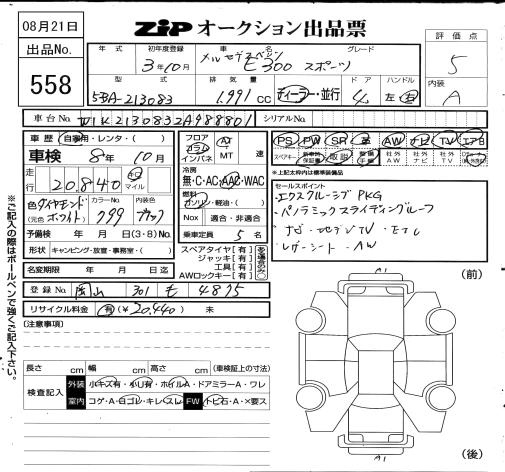 08月21日
ZIP オークション出品票
出品No.
558
年式 初年度登録 車名 グレード
3年10月 メルセデスベンツ E300 スポーツ
評価点
5
型式 排気量 ドア ハンドル
5BA-213083 1,991cc ディーラー・並行 4 左 右
内装
A
車台No. W1K2130832A988801 シリアルNo.
車歴 自家用・レンタ・( )
車検 8年10月
走行 20,840 キロ マイル
色 ダイヤモンドホワイト (元色 ) カラーNo. 799 内装色 ブラック
予備検 年 月 日(3・8)No.
形状 キャンピング・放置・事務室・( )
名変期限 年 月 日迄
登録No. 岡山 301 も 4875
リサイクル料金 有 (¥20,440) 未
(注意事項)
フロア コラム インパネ AT MT 速
冷房 無・C・AC・AAC・WAC
燃料 ガソリン・軽油・( )
Nox 適合・非適合
乗車定員 5 名
スペアタイヤ【有】
ジャッキ【有】
工具【有】
AWロックキー【有】
ある場合のみ○
PS PW SR 革 AW ナビ TV エアB
スペアキー 新車時保証書 取説 整備手帳 社外AW 社外ナビ 社外TV
*上記枠内は標準装備品
セールスポイント
・エクスクルーシブPKG
・パノラミックスライディングルーフ
・ナビ・地デジTV・ETC
・レザーシート・AW
(前)
A1
長さ cm 幅 cm 高さ cm (車検証上の寸法)
検査記入 外装 小キズ有・小凹有・ホイルA・ドアミラーA・ワレ
室内 コゲ・A・白コレ・キレ・スレ FW トビ石・A・×要ス
A1
(後)
ご記入の際はボールペンで強くご記入下さい。